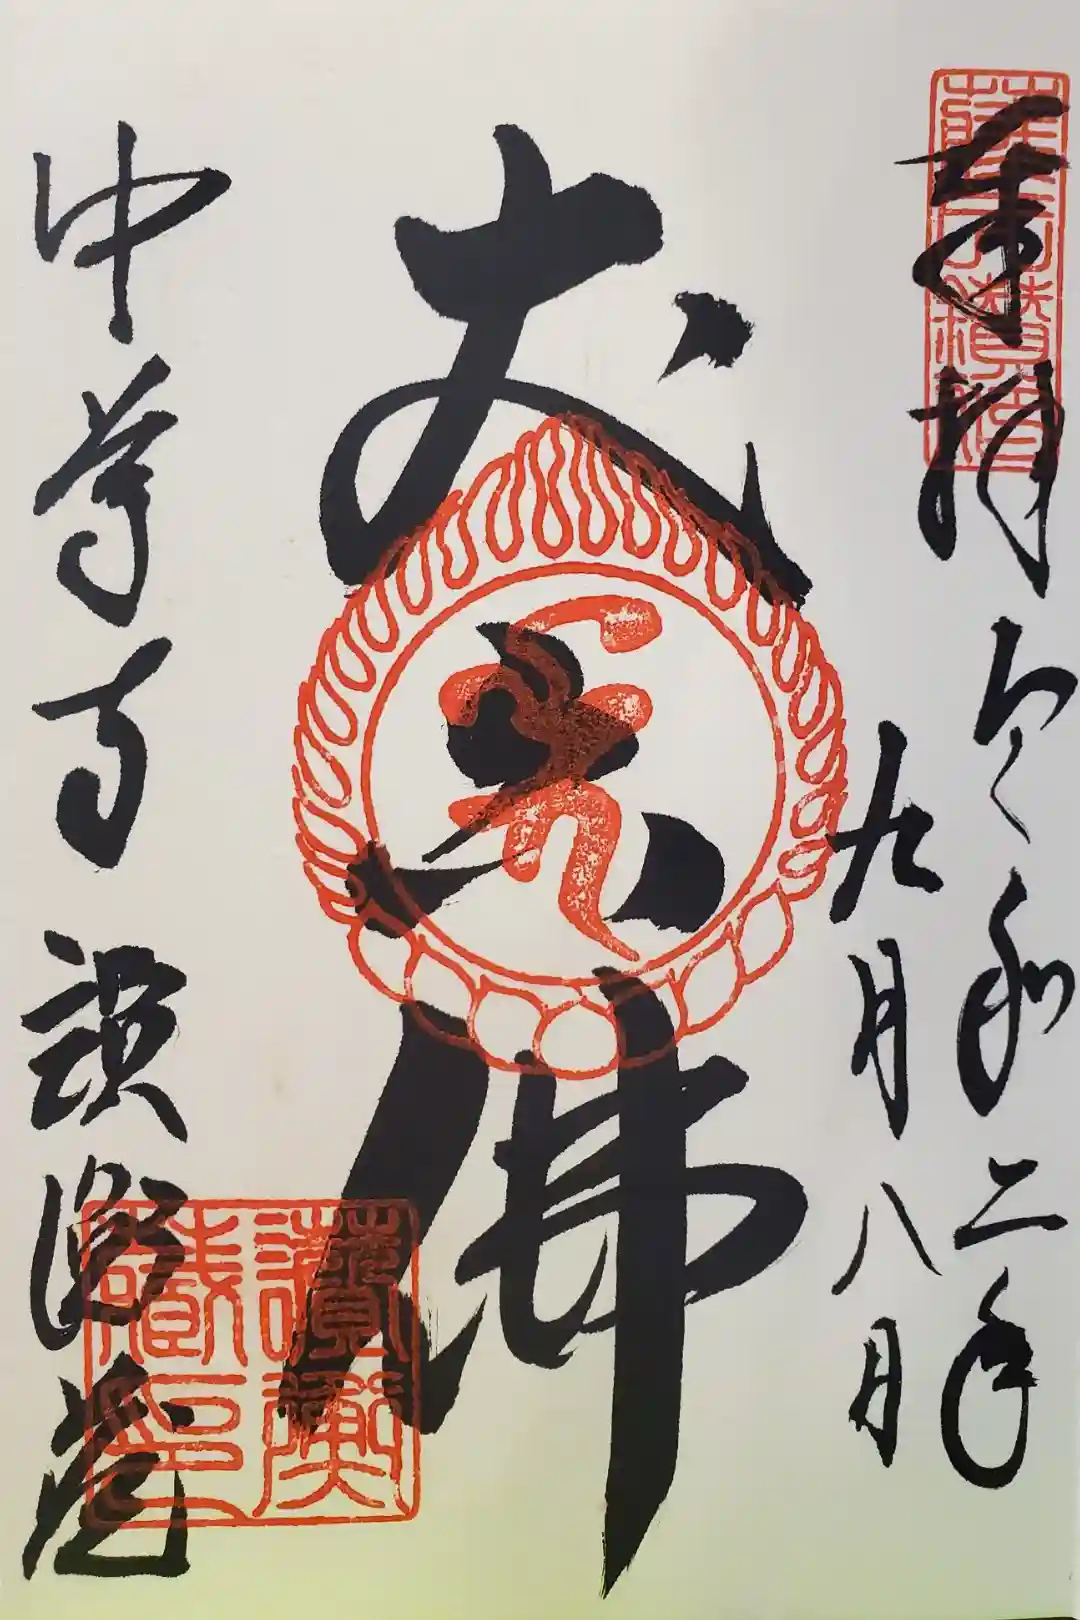 奉拝 令和二年
九月八日
丈六佛
中尊寺 讃衡蔵
讃衡蔵印